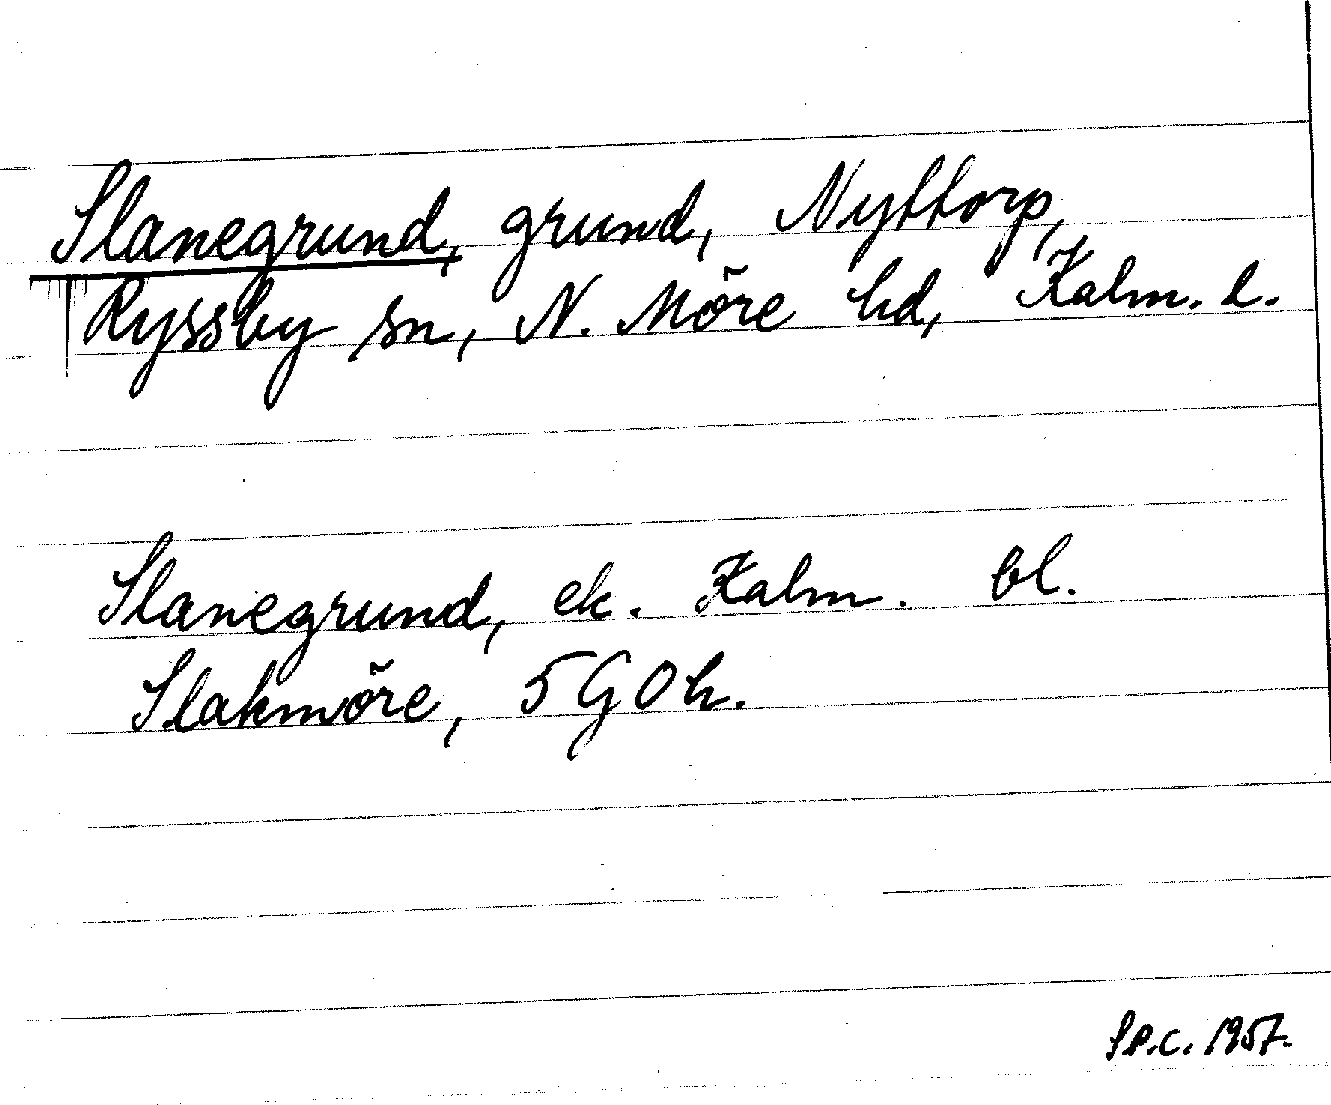 Slanegrund, grund, Nyttorp,
Ryssby sn, N. Möre hd, Kalm. l.
Slanegrund, ek. Kalm. bl.
Slakmöre, 5 G O h.
S P.C. 1957.